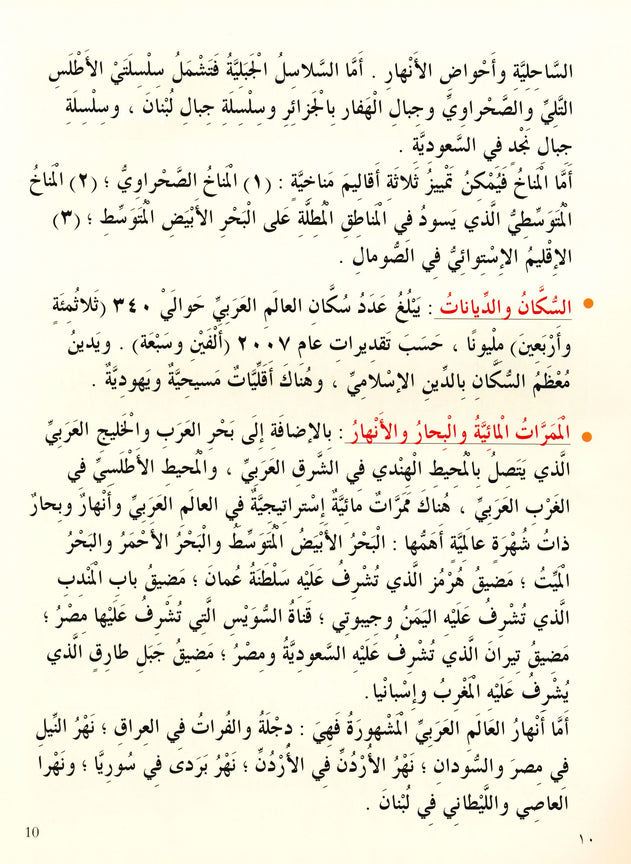 السَّاحِلِيَّة وأَحْواضِ الأَنْهار . أَمَّا السَّلاسِلُ الْجَبَلِيَّةُ فَتَشْمَلُ سِلْسِلَتَيْ الأَطْلَسِ
التَّلِيِّ والصَّحْراوِيِّ وجبالِ الْهَفار بِالْجَزائِرِ وسِلْسِلَة جبالِ لُبْنانَ ، وسِلْسِلَة
جبالِ نَجْدٍ في السَّعودِيَّة .
أَمَّا الْمَناخُ فَيُمْكِنُ تَمْيِيزُ ثَلاثَة أَقاليمَ مَناخِيَّةٍ : (١) الْمَناخُ الصَّحْراوِيُّ ؛ (٢) الْمَناخُ
الْمُتَوَسِّطِيُّ الَّذي يَسودُ في الْمَناطِقِ الْمُطِلَّةِ عَلى الْبَحْرِ الأَبْيَضِ الْمُتَوَسِّطِ ؛ (٣)
الإِقْليمُ الإِسْتِوائِيُّ في الصُّومالِ .
السُّكَّانُ والدِّياناتُ : يَبْلُغُ عَدَدُ سُكَّانِ العالَمِ العَرَبِيِّ حَوالَيْ ٣٤٠ (ثَلاثُمِئَةٍ
وأَرْبَعينَ) مِلْيونًا ، حَسَبَ تَقْديراتِ عام ٢٠٠٧ (أَلْفَيْنِ وسَبْعَة) . ويَدينُ
مُعْظَمُ السُّكَّانِ بِالدِّينِ الإِسْلامِيِّ ، وهُناكَ أَقَلِّيَّاتٌ مَسيحِيَّةٌ ويَهودِيَّةٌ .
الْمَمَرَّاتُ الْمائِيَّةُ والْبِحارُ والأَنْهارُ : بِالإِضافَةِ إِلَى بَحْرِ العَرَبِ والْخَليجِ العَرَبِيِّ
الَّذي يَتَّصِلُ بِالْمُحيطِ الْهِنْدي في الشَّرق العَرَبِيِّ ، والْمُحيطِ الأَطْلَسِيِّ في
الغَرْبِ العَرَبِيِّ ، هُناكَ مَمَرَّاتٌ مائِيَّةٌ إِسْتراتيجِيَّةٌ في العالَم العَرَبِيِّ وأَنْهارٌ وبِحارٌ
ذاتُ شُهْرَةٍ عالَمِيَّةٍ أَهَمُّها : الْبَحْرُ الأَبْيَضُ الْمُتَوَسِّطُ والْبَحْرُ الأَحْمَرُ والْبَحْرُ
الْمَيِّتُ ؛ مَضيقُ هُرْمُز الَّذي تُشْرِفُ عَلَيْه سَلْطَنَةُ عُمان ؛ مَضيقُ باب الْمَنْدِب
الَّذي تُشْرِفُ عَلَيْه اليَمَنُ وجيبوتي ؛ قَناةُ السُّوَيْسِ الَّتِي تُشْرِفُ عَلَيْها مِصْرُ ؛
مَضيقُ تيران الَّذي تُشْرِفُ عَلَيْه السَّعودِيَّةُ ومِصْرُ ؛ مَضيقُ جَبَلِ طارِقٍ الَّذي
يُشْرِفُ عَلَيْه الْمَغْرِبُ وإِسْبانْيا.
أَمَّا أَنْهارُ العَالَمِ العَرَبِيِّ الْمَشْهورَةُ فَهِيَ : دِجْلَةُ والفُراتُ في العِراق ؛ نَهْرُ النِّيلِ
في مِصرَ والسُّودانِ ؛ نَهْرُ الأُرْدُنِّ في الأُرْدُنِّ ؛ نَهْرُ بَرَدى في سُورِيَّا ؛ ونَهْرا
العاصِي واللَّيْطاني في لُبْنانَ .
10
١٠